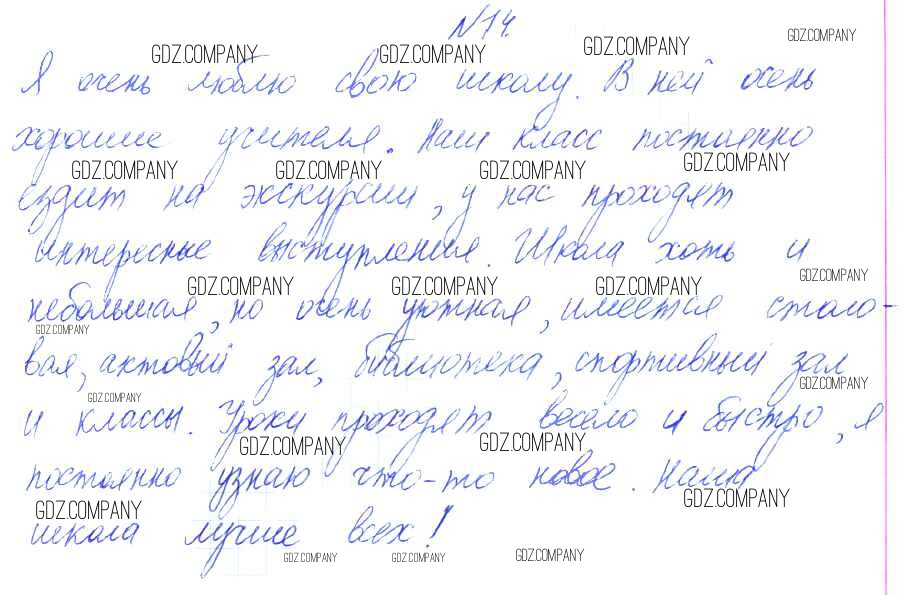 №14.
Я очень люблю свою школу. В ней очень
хорошие учителя. Наш класс постоянно
ездит на экскурсии, у нас проходят
интересные выступления. Школа хоть и
небольшая, но очень уютная, имеется столо-
вая, актовый зал, библиотека, спортивный зал
и классы. Уроки проходят весело и быстро, я
постоянно узнаю что-то новое. Наша
школа лучше всех!
GDZ.COMPANY GDZ.COMPANY GDZ.COMPANY GDZ.COMPANY
GDZ.COMPANY GDZ.COMPANY GDZ.COMPANY GDZ.COMPANY
GDZ.COMPANY GDZ.COMPANY GDZ.COMPANY GDZ.COMPANY
GDZ.COMPANY
GDZ.COMPANY GDZ.COMPANY
GDZ.COMPANY GDZ.COMPANY
GDZ.COMPANY GDZ.COMPANY
GDZ.COMPANY GDZ.COMPANY GDZ.COMPANY